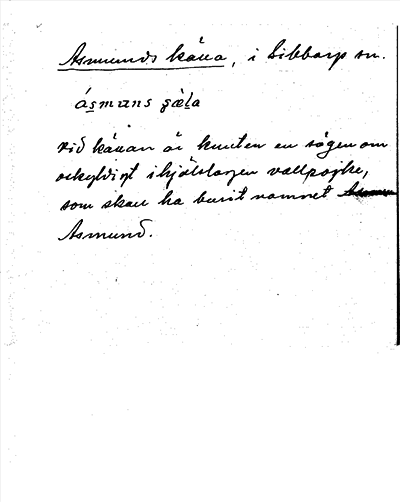 Asmunds källa, i Sibbarp sn.
ásmans
Vid källan är knuten en sägen om
oskyldigt ihjälslagen vallpojke,
som skall ha burit namnet
Asmund.